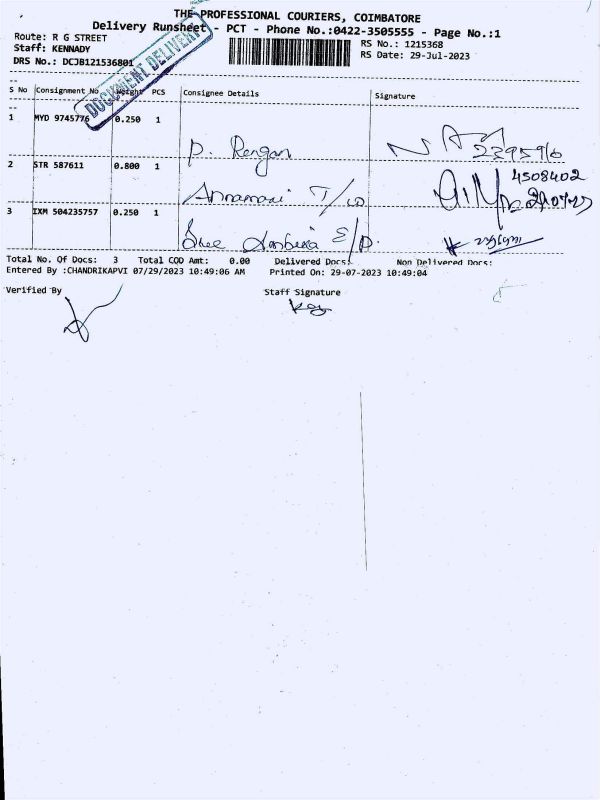 THE PROFESSIONAL COURIERS, COIMBATORE
Delivery Runsheet - PCT - Phone No.:0422-3505555 - Page No.:1
Route: R G STREET
RS No.: 1215368
Staff: KENNADY
RS Date: 29-Jul-2023
DRS No.: DCJB121536801
DOCUMENT DELIVERY
S No Consignment No Weight PCS Consignee Details Signature
1 MYD 9745776 0.250 1
P. Rengan
2 STR 587611 0.800 1
4508402
3 IXM 504235757 0.250 1
Sree Ambika E/P.
Total No. Of Docs: 3 Total COD Amt: 0.00 Delivered Docs: Non Delivered Docs:
Entered By :CHANDRIKAPVI 07/29/2023 10:49:06 AM Printed On: 29-07-2023 10:49:04
Verified By Staff Signature